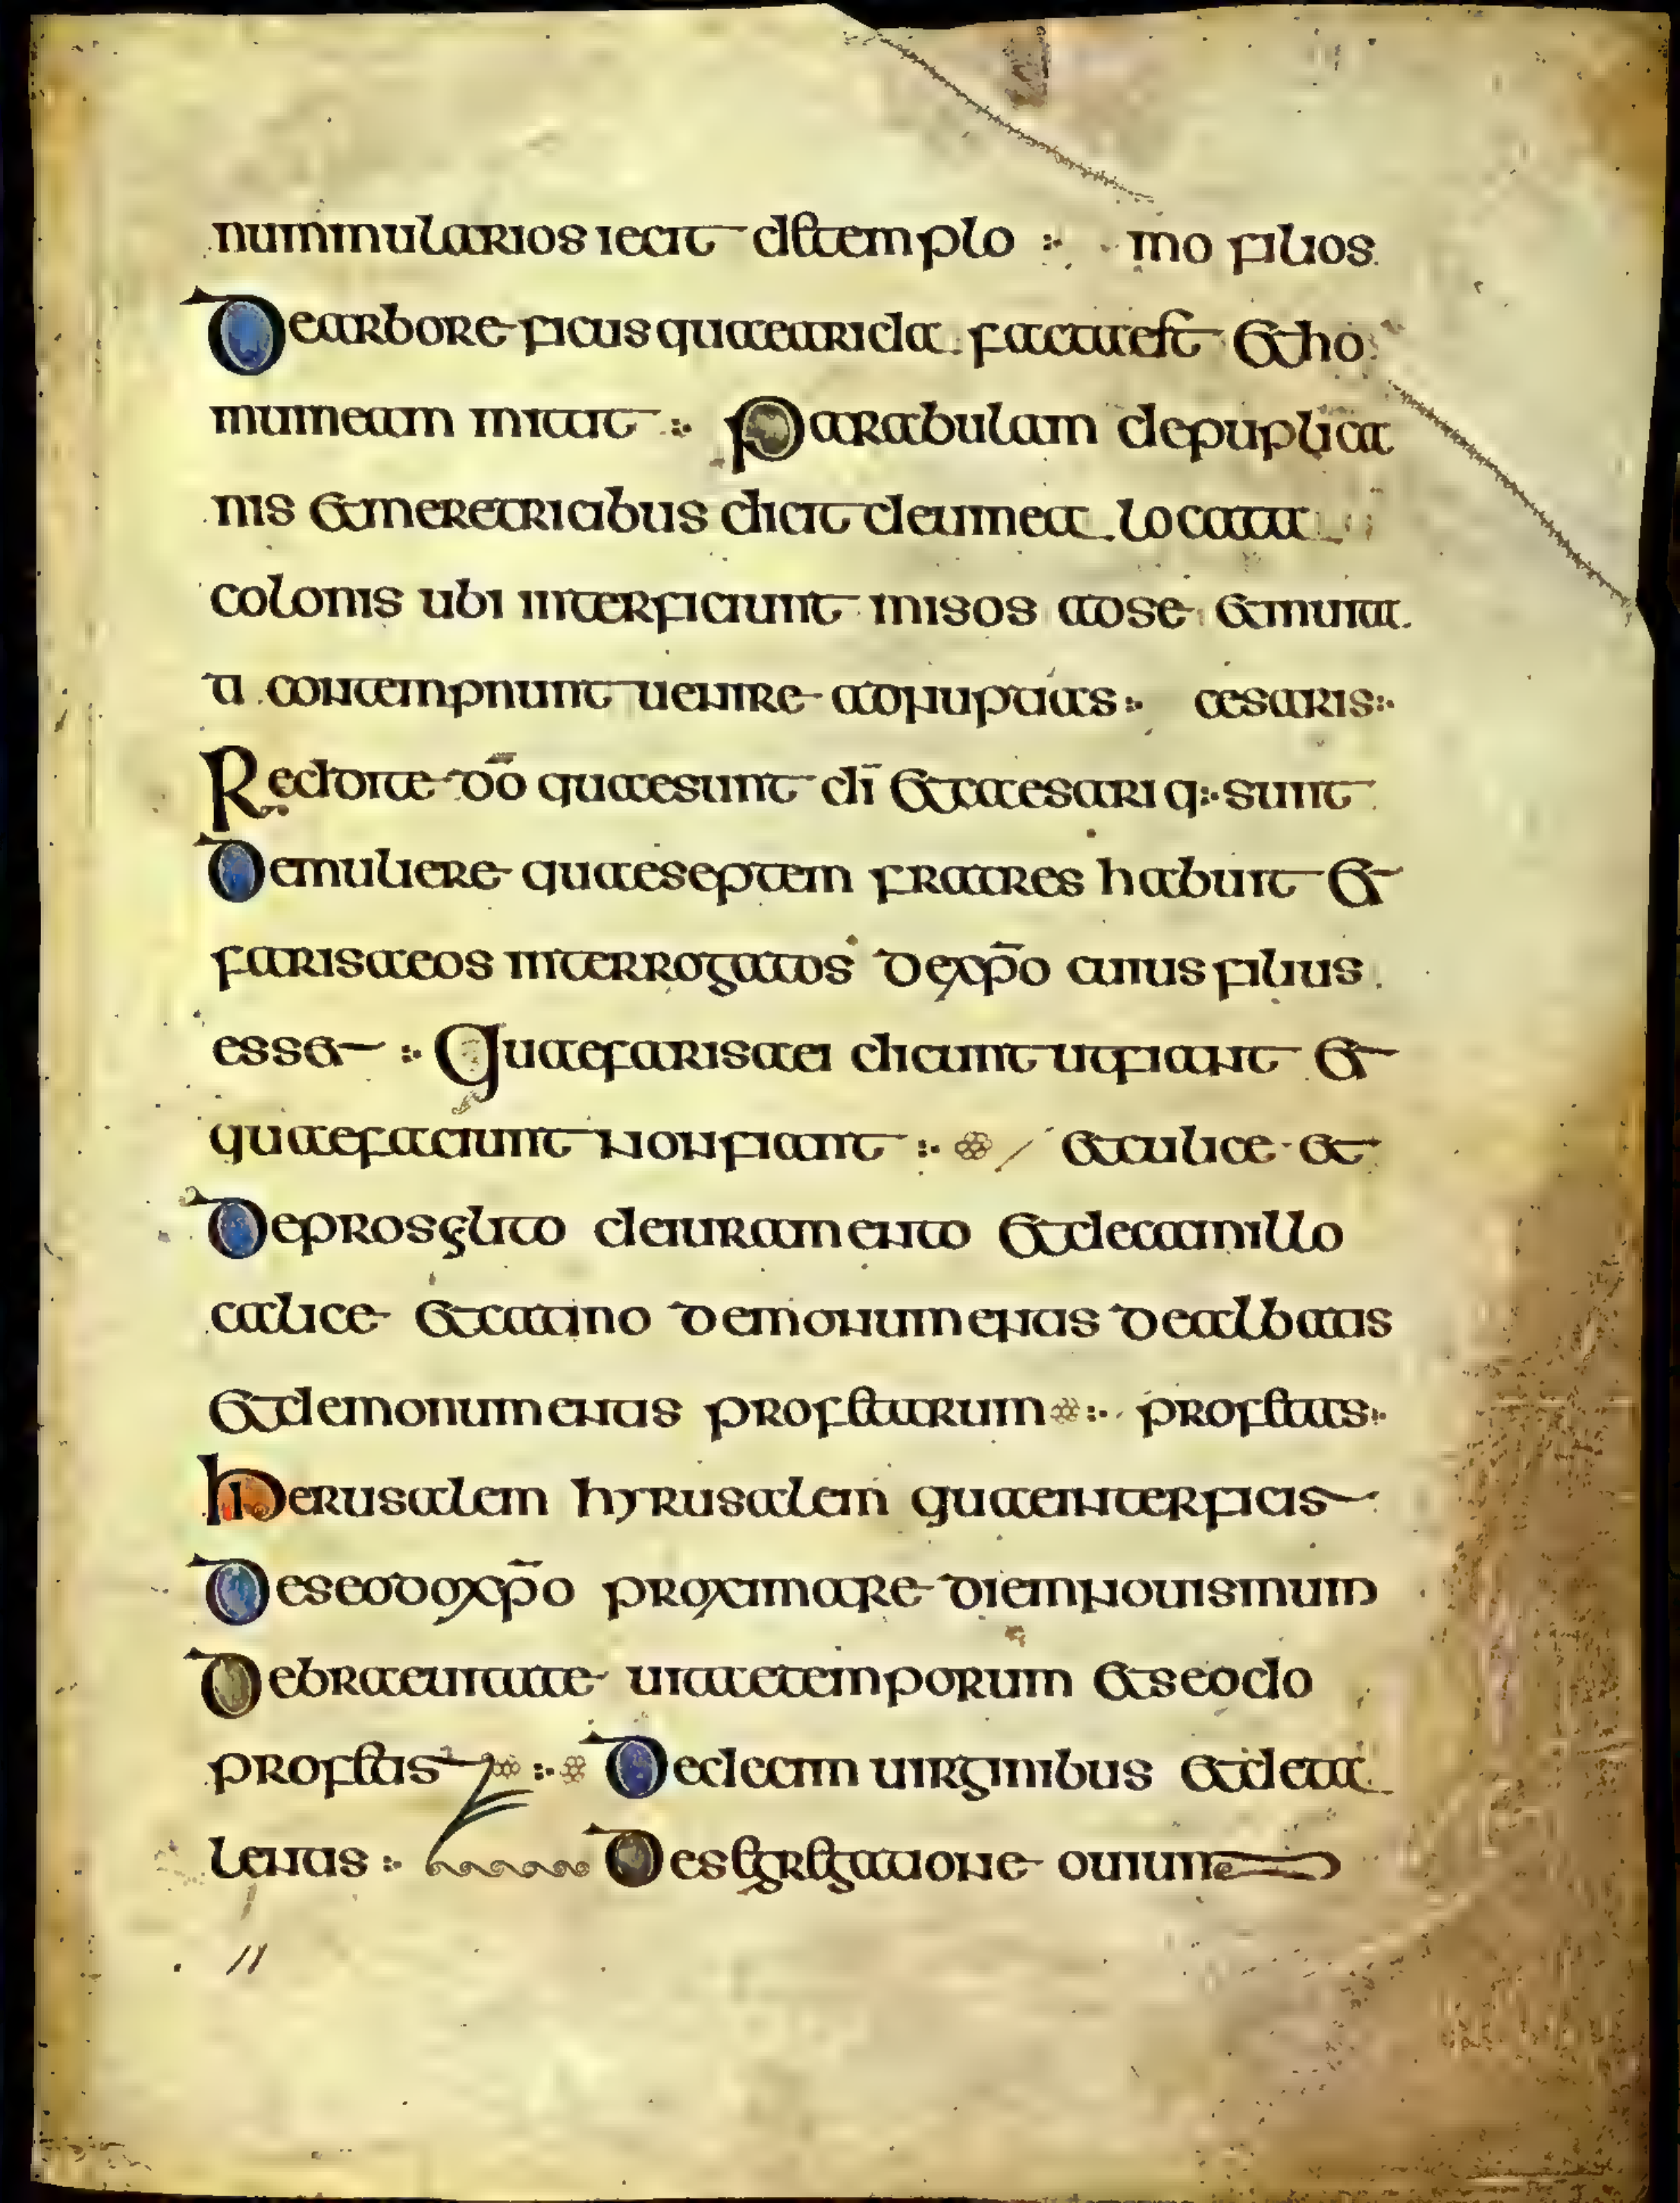 nummularios iecit de templo :· mo filios
De arbore ficus quae arida facta est et ho
minem misit :· Parabulam de puplica
nis et meretricibus dicit de uinea locata
colonis ubi interficiunt missos ad se et inuita
ti contempnunt uenire ad nuptias :· cesaris :·
Reddite dō quae sunt dī et caesari q:· sunt
De muliere quae septem fratres habuit et
farisaeos interrogatos de xp̄o cuius filius
esset :· Quae farisaei dicunt ut fiant et
quae faciunt non fiant :· et culice et
De proselito de iuramento et decat in illo
calice et catino de monumentis dealbatis
et de monumentis profetarum :· profetas :·
hierusalem hyrusalem quae interficis
De seodoxp̄o proximare diem nouisimum
De breuitate uitae temporum et seodo
profetis :· De decim uirginibus et de ta
lentis :· De segregatione ouium